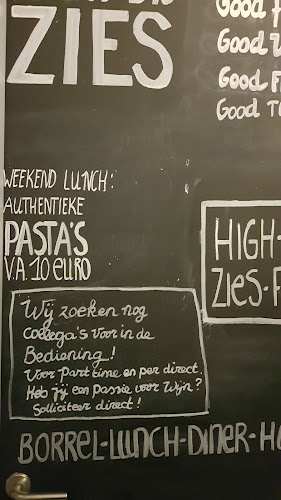 ZIES
Good
Good
Good
Good
WEEKEND LUNCH:
AUTHENTIEKE
PASTA'S
V.A. 10 EURO
HIGH-
ZIES-F
Wij zoeken nog
collega's voor in de
Bediening!
Voor Part time en per direct.
Heb jij een passie voor Wijn?
Solliciteer direct!
BORREL-LUNCH-DINER-H